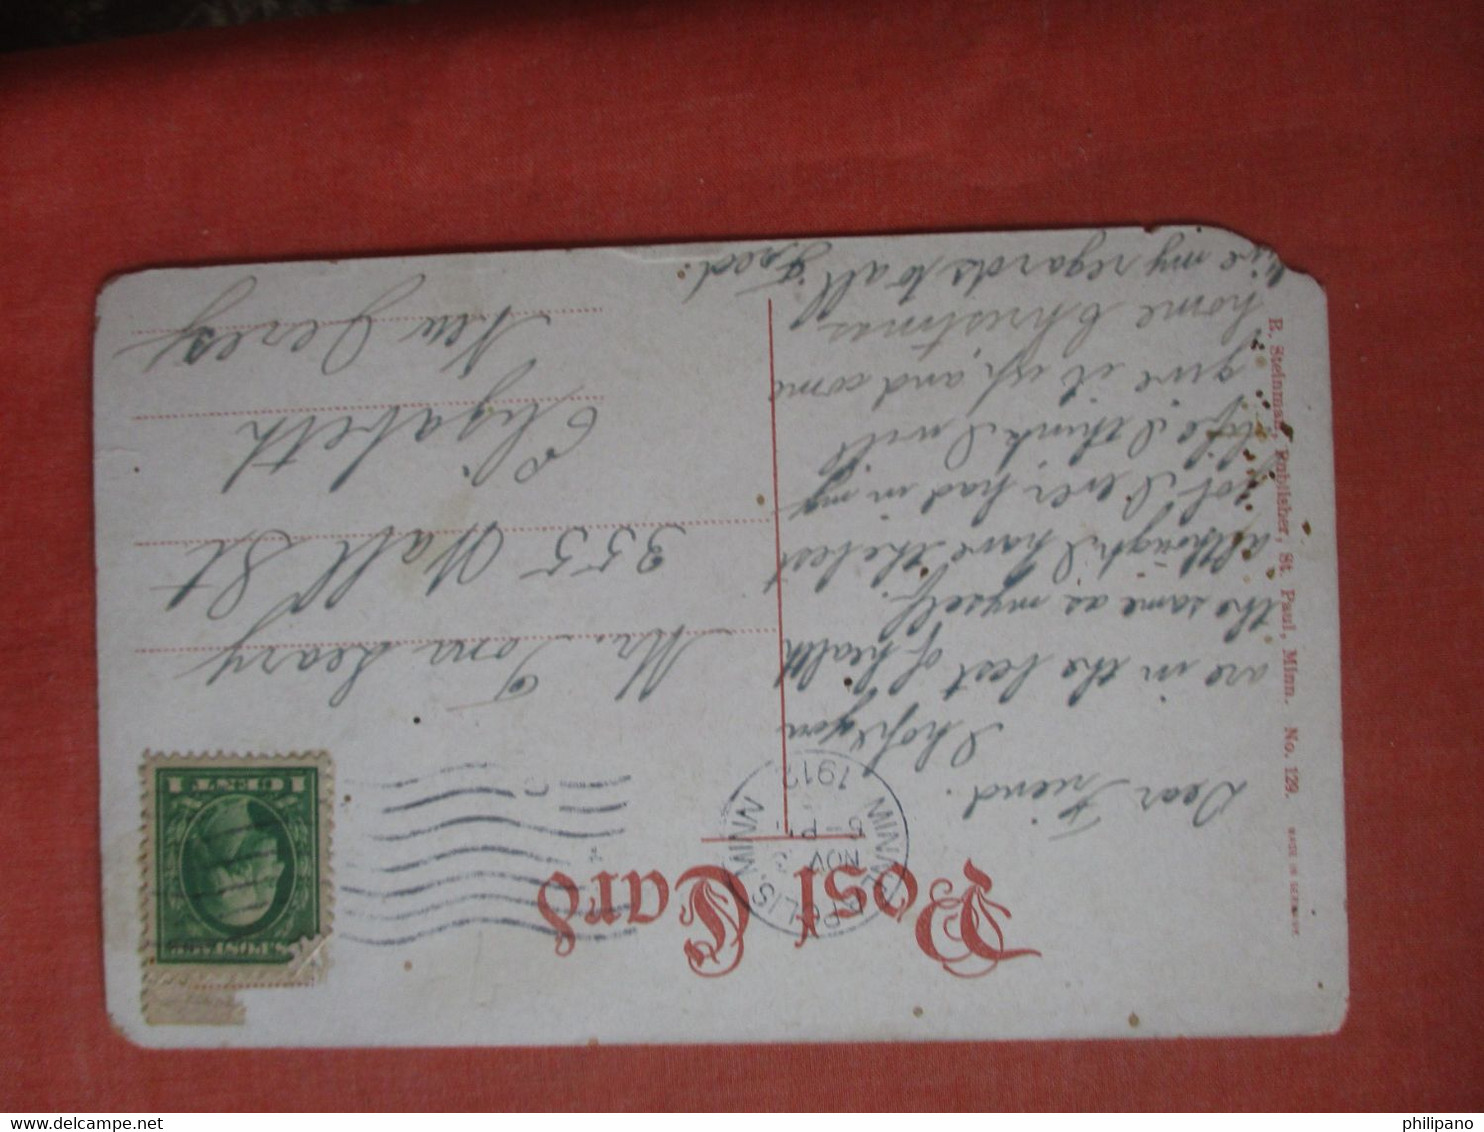 Post Card
MINNEAPOLIS, MINN.
NOV 3
5-PM
1912
Dear Friend.
I hope you
are in the best of health
the same as myself.
although I have the best
job I ever had in my
life I think I will
give it up, and come
home Christmas
Give my regards to all
good.
Mr. Tom Leary
355 Wall St
Elizabeth
New Jersey
B. Steinman, Publisher, St. Paul, Minn. No. 129. MADE IN GERMANY
1 CENT 1
delcampe.net
philipano